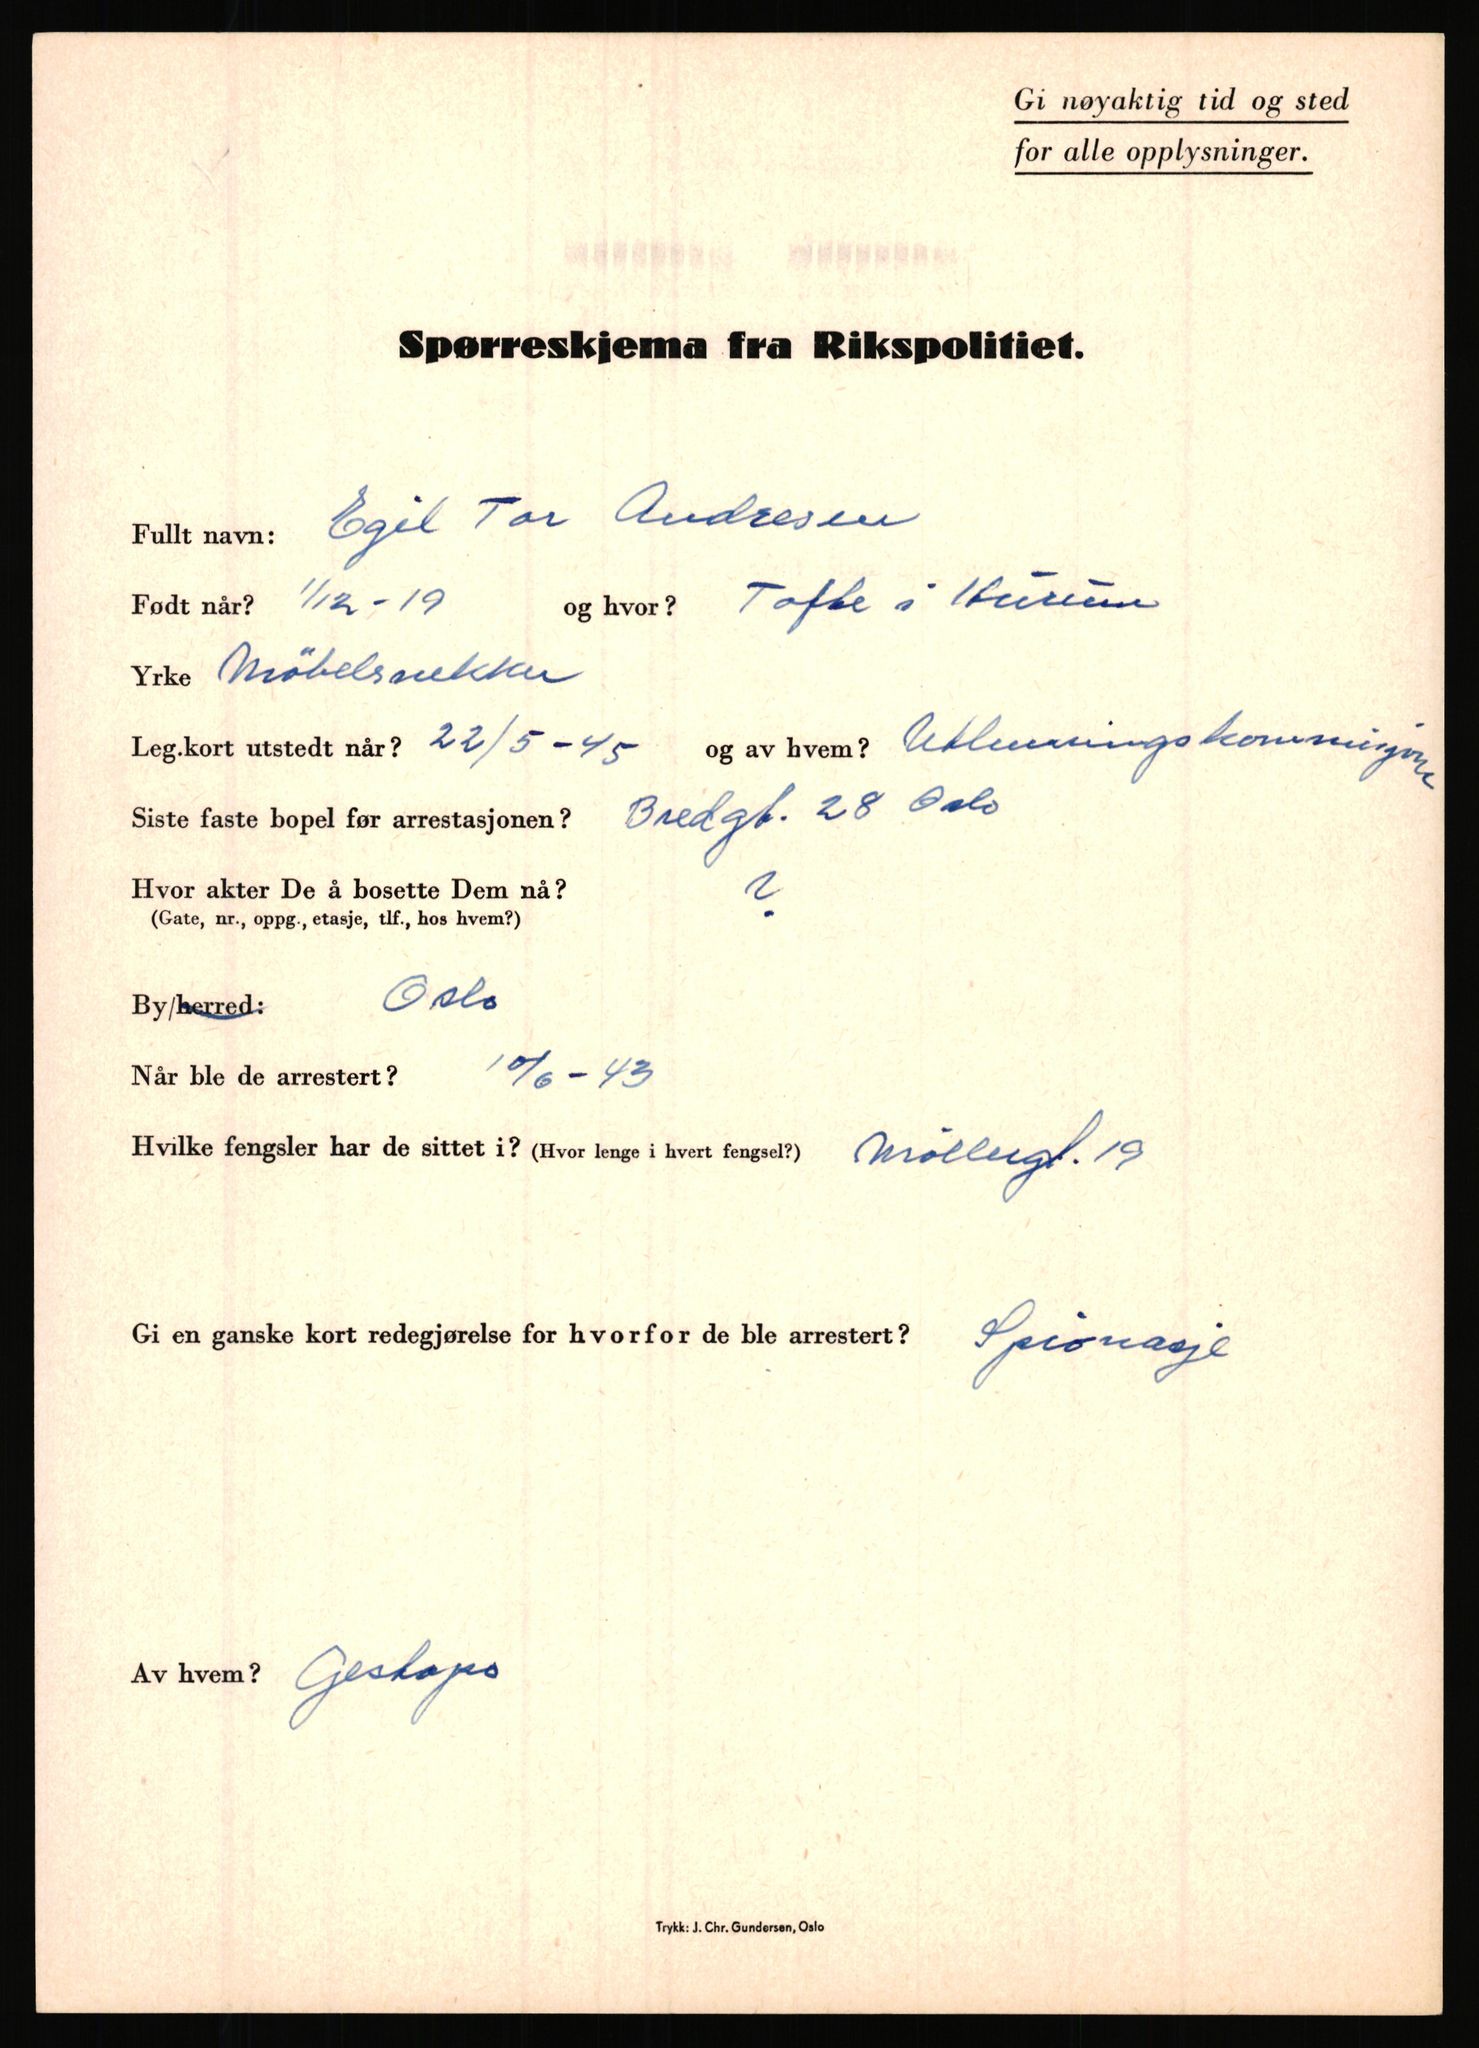 Gi nøyaktig tid og sted
for alle opplysninger.
Spørreskjema fra Rikspolitiet.
Fullt navn: Egil Tor Andresen
Født når? 1/12-19 og hvor? Tofte i Hurum
Yrke Möbelsnekker
Leg.kort utstedt når? 22/5-45 og av hvem?
Siste faste bopel før arrestasjonen? Bredgt. 28 Oslo
Hvor akter De å bosette Dem nå? ?
(Gate, nr., oppg., etasje, tlf., hos hvem?)
By/herred: Oslo
Når ble de arrestert? 10/6-43
Hvilke fengsler har de sittet i? (Hvor lenge i hvert fengsel?) Möllergt. 19
Gi en ganske kort redegjørelse for hvorfor de ble arrestert? Spionasje
Av hvem? Gestapo
Trykk: J. Chr. Gundersen, Oslo